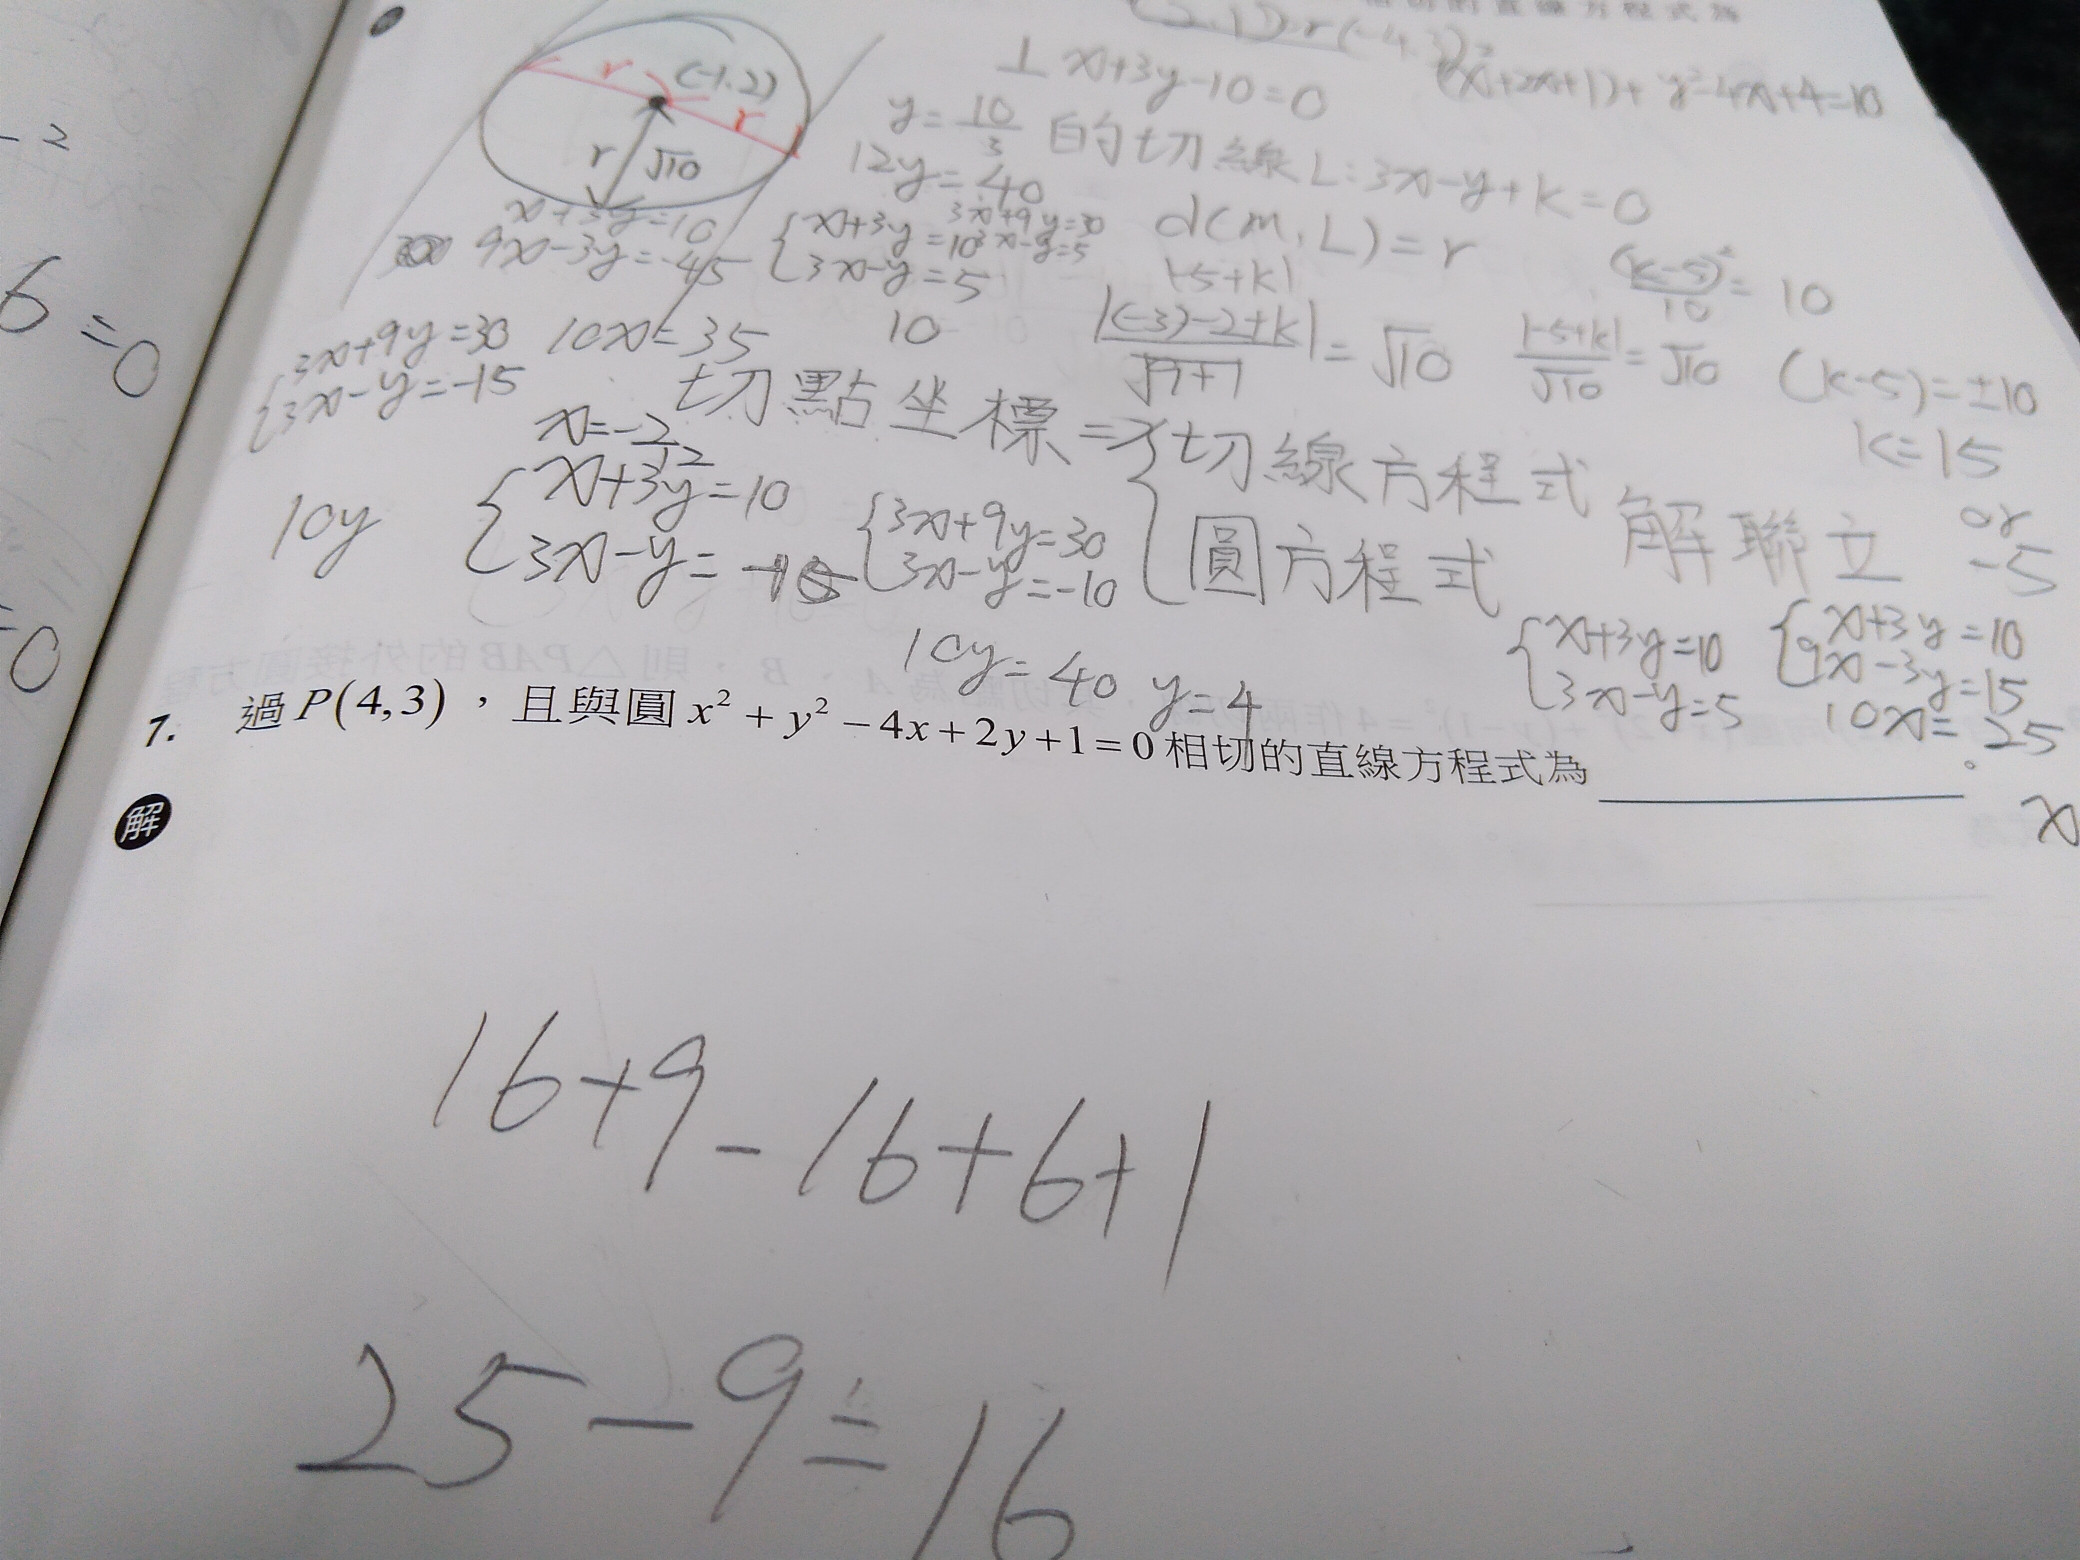 (-1,2)
r
r
r √10
⊥ x+3y-10=0
(x²+2x+1)+y²-4x+4=10
y=10/3 的切線 L:3x-y+k=0
12y=40
d(m,L)=r
x+3y=10
9x-3y=-45
{x+3y=10
3x-y=5
3x+9y=30
3x-y=5
|-5+k|
|(-3)-2+k|/√9+1=√10
|-5+k|/√10=√10
(k-5)²/10=10
(k-5)=±10
k=15
or
-5
{3x+9y=30
3x-y=-15
10x=35
10
切點坐標=>{切線方程式
圓方程式
解聯立
10y
{x+3y=10
3x-y=
{3x+9y=30
3x-y=-10
10y=40 y=4
{x+3y=10
3x-y=5
{x+3y=10
9x-3y=15
10x=25
x
7. 過P(4,3),且與圓x²+y²-4x+2y+1=0相切的直線方程式為____。
解
16+9-16+6+1
25-9=16
-2
6=0
=0